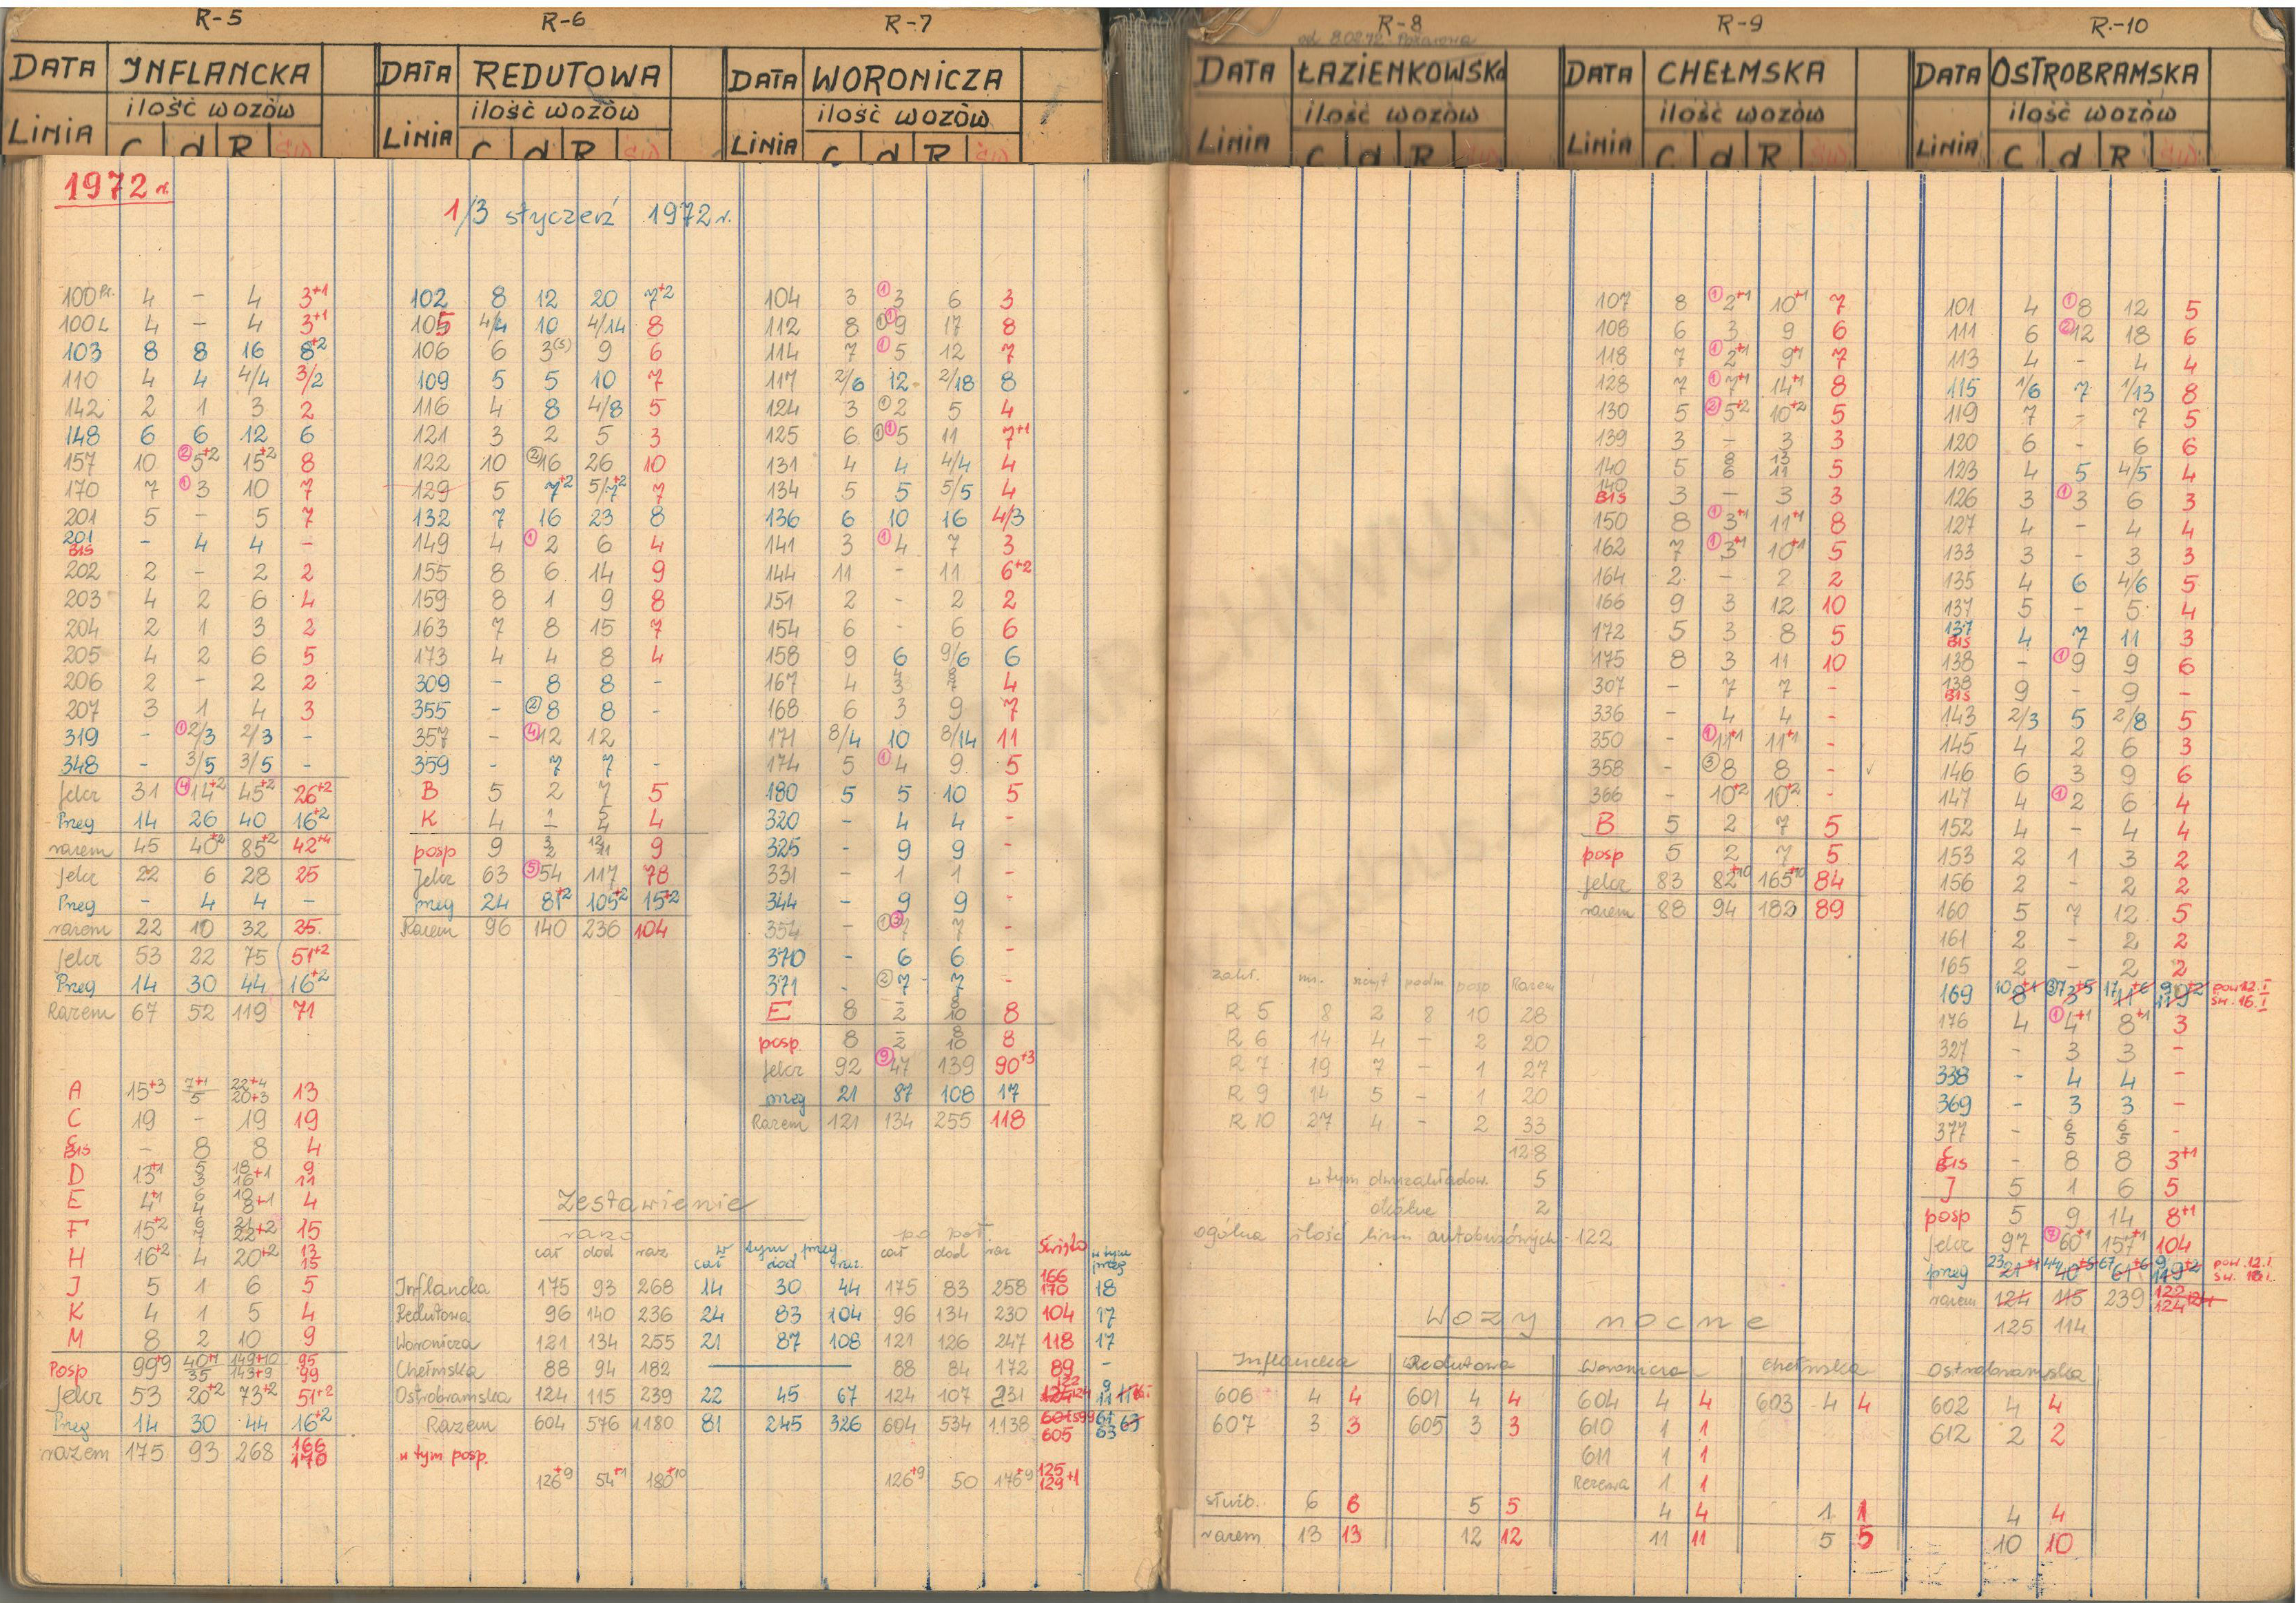 R-5
DATA INFLANCKA
LINIA ilość wozów
C d R św
1972 r.
100 Pr. 4 – 4 3+1
100 L 4 – 4 3+1
103 8 8 16 8+2
110 4 4 4/4 3/2
142 2 1 3 2
148 6 6 12 6
157 10 ②5+2 15+2 8
170 7 ①3 10 7
201 5 – 5 7
201 BIS – 4 4 –
202 2 – 2 2
203 4 2 6 4
204 2 1 3 2
205 4 2 6 5
206 2 – 2 2
207 3 1 4 3
319 – ①2/3 2/3 –
348 – 3/5 3/5 –
Jelcz 31 ④14+2 45+2 26+2
Preg 14 26 40 16+2
razem 45 40+2 85+2 42+4
Jelcz 22 6 28 25
Preg – 4 4 –
razem 22 10 32 25
Jelcz 53 22 75 51+2
Preg 14 30 44 16+2
Razem 67 52 119 71
A 15+3 7+1/5 22+4/20+3 13
C 19 – 19 19
C BIS – 8 8 4
D 13+1 5/3 18/16+1 9/11
E 4+1 6/4 10/8+1 4
F 15+2 6/7 21/22+2 15
H 16+2 4 20+2 13/15
J 5 1 6 5
K 4 1 5 4
M 8 2 10 9
Posp 99+9 40+1/35 149+10/143+9 95/99
Jelcz 53 20+2 73+2 51+2
Preg 14 30 44 16+2
razem 175 93 268 166/170
R-6
DATA REDUTOWA
LINIA ilość wozów
C d R św
1/3 styczeń 1972 r.
102 8 12 20 7+2
105 4/4 10 4/14 8
106 6 3(5) 9 6
109 5 5 10 7
116 4 8 4/8 5
121 3 2 5 3
122 10 ②16 26 10
129 5 7+2 5/7+2 7
132 7 16 23 8
149 4 ①2 6 4
155 8 6 14 9
159 8 1 9 8
163 7 8 15 7
173 4 4 8 4
309 – 8 8 –
355 – ②8 8 –
357 – ④12 12 –
359 – 7 7 –
B 5 2 7 5
K 4 1/– 5/4 4
posp 9 3/2 12/11 9
Jelcz 63 ⑤54 117 78
preg 24 81+2 105+2 15+2
Razem 96 140 236 104
R-7
DATA WORONICZA
LINIA ilość wozów
C d R św
104 3 ①3 6 3
112 8 ①①9 17 8
114 7 ①5 12 7
117 2/6 12 2/18 8
124 3 ①2 5 4
125 6 ①①5 11 7+1
131 4 4 4/4 4
134 5 5 5/5 4
136 6 10 16 4/3
141 3 ①4 7 3
144 11 – 11 6+2
151 2 – 2 2
154 6 – 6 6
158 9 6 9/6 6
167 4 4/3 8/7 4
168 6 3 9 7
171 8/4 10 8/14 11
174 5 ①4 9 5
180 5 5 10 5
320 – 4 4 –
325 – 9 9 –
331 – 1 1 –
344 – 9 9 –
354 – ①③7 7 –
370 – 6 6 –
371 – ②7 7 –
E 8 –/2 8/10 8
posp. 8 –/2 8/10 8
Jelcz 92 ⑨47 139 90+3
preg 21 87 108 17
Razem 121 134 255 118
Zestawienie
rano w tym preg. po poł. Święto w tym preg
cał dod raz cał dod raz. cał dod raz
Inflancka 175 93 268 14 30 44 175 83 258 166 170 18
Redutowa 96 140 236 24 83 104 96 134 230 104 17
Woronicza 121 134 255 21 87 108 121 126 247 118 17
Chełmska 88 94 182 88 84 172 89 –
Ostrobramska 124 115 239 22 45 67 124 107 231 122 124 9 11
Razem 604 576 1180 81 245 326 604 534 1138 601 599 605 61 63 63
w tym posp.
126+9 54+1 180+10 126+9 50 176+9 125 129+1
R-8
od 8.02.72 Pożarowa
DATA ŁAZIENKOWSKA
LINIA ilość wozów
C d R św
zakł. nr. szczyt podm posp Razem
R 5 8 2 8 10 28
R 6 14 4 – 2 20
R 7 19 7 – 1 27
R 9 14 5 – 1 20
R 10 27 4 – 2 33
128
w tym dwuzakładow. 5
okólne 2
ogólna ilość linii autobusowych – 122
R-9
DATA CHEŁMSKA
LINIA ilość wozów
C d R św
107 8 ①2+1 10+1 7
108 6 3 9 6
118 7 ①2+1 9+1 7
128 7 ①7+1 14+1 8
130 5 ②5+2 10+2 5
139 3 – 3 3
140 5 8/6 13/11 5
140 BIS 3 – 3 3
150 8 ①3+1 11+1 8
162 7 ①3+1 10+1 5
164 2 – 2 2
166 9 3 12 10
172 5 3 8 5
175 8 3 11 10
307 – 7 7 –
336 – 4 4 –
350 – ①11+1 11+1 –
358 – ③8 8 – ✓
366 – 10+2 10+2 –
B 5 2 7 5
posp 5 2 7 5
Jelcz 83 82+10 165+10 84
razem 88 94 182 89
R.-10
DATA OSTROBRAMSKA
LINIA ilość wozów
C d R św
101 4 ①8 12 5
111 6 ②12 18 6
113 4 – 4 4
115 1/6 7 1/13 8
119 7 – 7 5
120 6 – 6 6
123 4 5 4/5 4
126 3 ①3 6 3
127 4 – 4 4
133 3 – 3 3
135 4 6 4/6 5
137 5 – 5 4
137 BIS 4 7 11 3
138 – ①9 9 6
138 BIS 9 – 9 –
143 2/3 5 2/8 5
145 4 2 6 3
146 6 3 9 6
147 4 ①2 6 4
152 4 – 4 4
153 2 1 3 2
156 2 – 2 2
160 5 7 12 5
161 2 – 2 2
165 2 – 2 2
169 10 8+1 7 3+5 17 11+6 9 11 9+2 pow 12.I św. 16.I
176 4 ①4+1 8+1 3
327 – 3 3 –
338 – 4 4 –
369 – 3 3 –
377 – 6/5 6/5 –
C BIS – 8 8 3+1
J 5 1 6 5
posp 5 9 14 8+1
Jelcz 97 ⑦60+1 157+1 104
preg 23 21+1 44 40+5 67 61+6 9 11 9+2 pow. 12.I św. 16.I.
razem 124 115 239 122 124 124
125 114
Wozy nocne
Inflancka Redutowa Woronicza Chełmska Ostrobramska
606 4 4 601 4 4 604 4 4 603 4 4 602 4 4
607 3 3 605 3 3 610 1 1 612 2 2
611 1 1
Rezerwa 1 1
służb. 6 6 5 5 4 4 1 1 4 4
razem 13 13 12 12 11 11 5 5 10 10